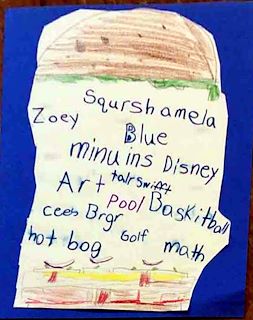 Squrshamela
Zoey
Blue
minuins Disney
Art talrSwifft
Pool Baskitball
cees Brgr
hot bog Golf math